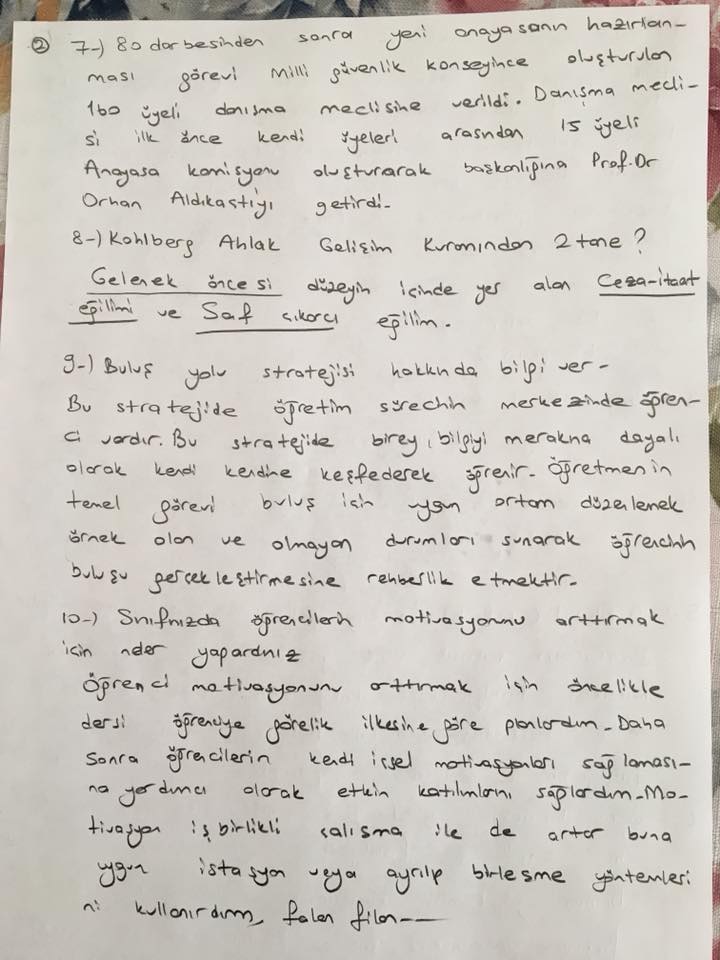 ② 7-) 80 darbesinden sonra yeni anayasanın hazırlan-
ması görevi Milli güvenlik konseyince oluşturulan
160 üyeli danışma meclisine verildi. Danışma mecli-
si ilk önce kendi üyeleri arasından 15 üyeli
Anayasa komisyonu oluşturarak başkanlığına Prof.Dr
Orhan Aldıkastı'yı getirdi.
8-) Kohlberg Ahlak Gelişim Kuramından 2 tane ?
Gelenek öncesi düzeyin içinde yer alan Ceza-itaat
eğilimi ve Saf çıkarcı eğilim.
9-) Buluş yolu stratejisi hakkında bilgi ver-
Bu stratejide öğretim sürecinin merkezinde öğren-
ci vardır. Bu stratejide birey, bilgiyi merakına dayalı
olarak kendi kendine keşfederek öğrenir. Öğretmenin
temel görevi buluş için uygun ortam düzenlemek
örnek olan ve olmayan durumları sunarak öğrencinin
buluşu gerçekleştirmesine rehberlik etmektir.
10-) Sınıfınızda öğrencilerin motivasyonunu arttırmak
için neler yapardınız
Öğrenci motivasyonunu arttırmak için öncelikle
dersi öğrenciye görelik ilkesine göre planlardım. Daha
sonra öğrencilerin kendi içsel motivasyonları sağlaması-
na yardımcı olarak etkin katılımlarını sağlardım. Mo-
tivasyon işbirlikli çalışma ile de artar buna
uygun istasyon veya ayrılıp birleşme yöntemleri
ni kullanırdım, falan filan---